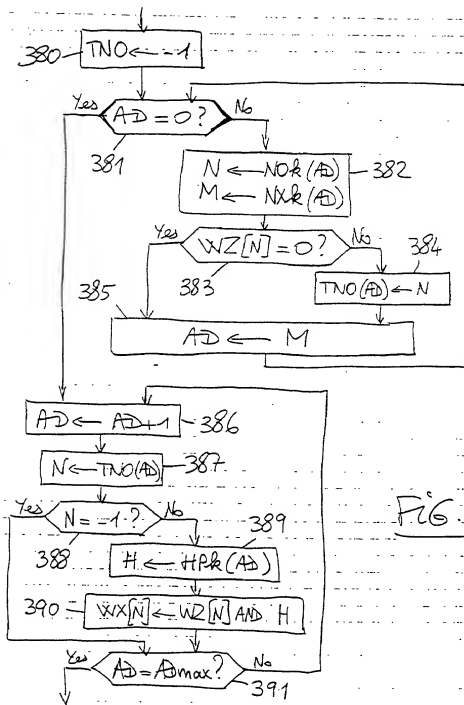 380 TNO ← -1
Yes AD = 0? No
381
N ← NOk(AD)
M ← NXk(AD)
382
Yes WZ[N] = 0? No
383
384
TNO(AD) ← N
385
AD ← M
AD ← AD+1 386
N ← TNO(AD) 387
Yes N = -1? No
388
389
H ← HPk(AD)
390 WX[N] ← WZ[N] AND H
Yes AD = ADmax? No
391
FiG.